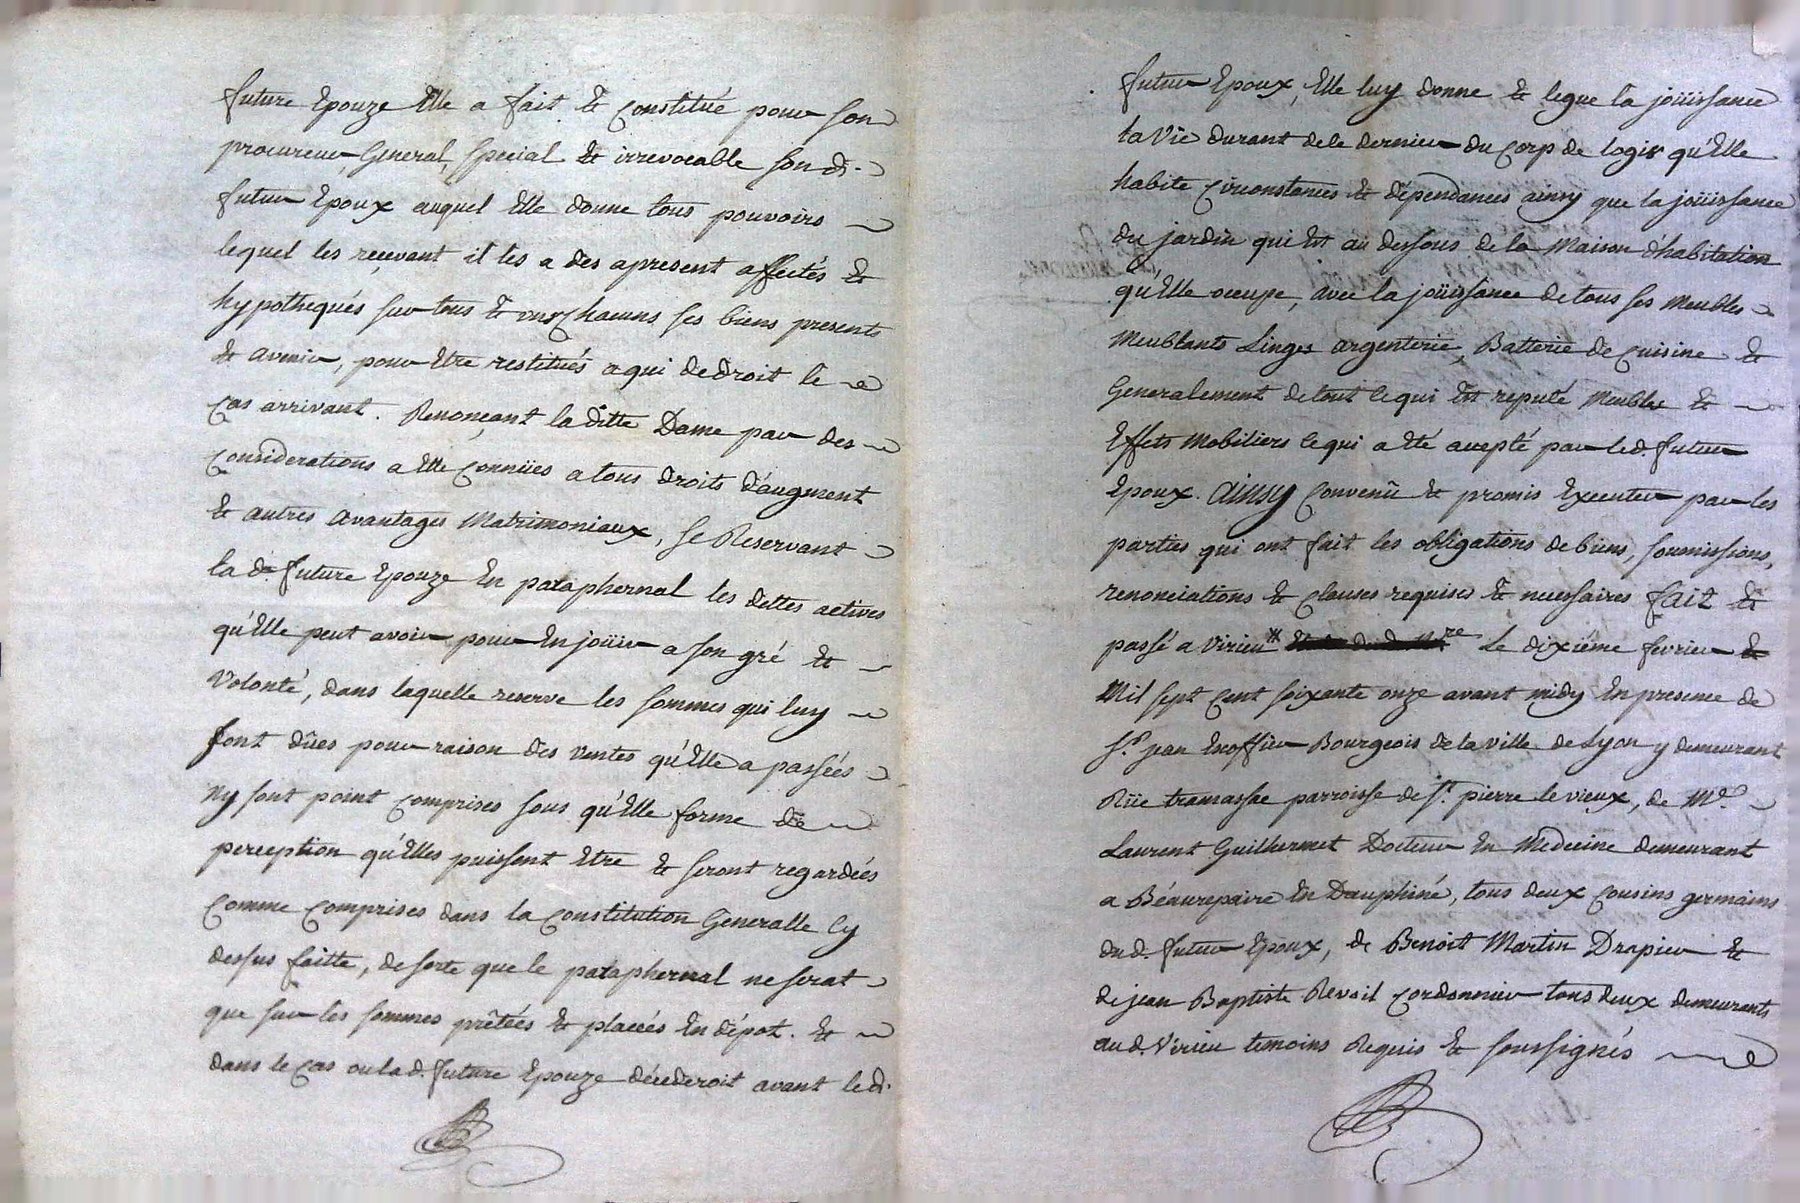 future Epouze Elle a fait & constitué pour son
procureur General, special & irrevocable son d.
futur Epoux auquel Elle donne tous pouvoirs
lequel les reçevant il les a des apresent affectés &
hypothequés sur tous & uns chacuns ses biens presents
& avenir, pour Etre restitués a qui de droit le
cas arrivant. Renonçant la ditte Dame par des
considerations a Elle connües a tous droits d'augment
& autres avantages Matrimoniaux, se Reservant
la d. future Epouze En pataphernal les dettes actives
qu'Elle peut avoir pour En joüir a son gré &
volonté, dans laquelle reserve les sommes qui luy
sont dües pour raison des ventes qu'Elle a passées
ny sont point comprises sous qu'Elle forme de
perception qu'Elles puissent Etre & seront regardées
comme comprises dans la constitution Generalle cy
dessus faitte, de sorte que le pataphernal ne serat
que sur les sommes prêtées & placées En dépot. &
dans le cas ou la d. future Epouze décederoit avant le d.
futur Epoux, Elle luy donne & legue la joüissance
la Vie durant de le dernier du corp de logis qu'Elle
habite circonstances & dépendances ainsy que la joüissance
du jardin qui Est au dessous de la Maison d'habitation
qu'Elle occupe, avec la joüissance de tous ses Meubles
Meublants Linges argenterie, Batterie de cuisine &
Generalement de tout ce qui Est reputé Meubles &
Effets Mobiliers ce qui a Eté accepté par le d. futur
Epoux. Ainsy convenû & promis Executer par les
parties qui ont fait les obligations de biens, soumissions,
renonciations & clauses requises & necessaires fait &
passé a Virieu * Le dixiéme fevrier
Mil sept cent soixante onze avant midy En presence de
Sr. jean Bourgeois de la ville de Lyon y demeurant
Rüe tramassac parroisse de St. pierre le vieux, de Me.
Laurent Guilhermet Docteur En Medecine demeurant
a Béaurepaire En Dauphiné, tous deux cousins germains
du d. futur Epoux, de Benoit Martin Drapier &
de jean Baptiste Revoil cordonnier tous deux demeurants
au d. Virieu temoins Requis & soussignés